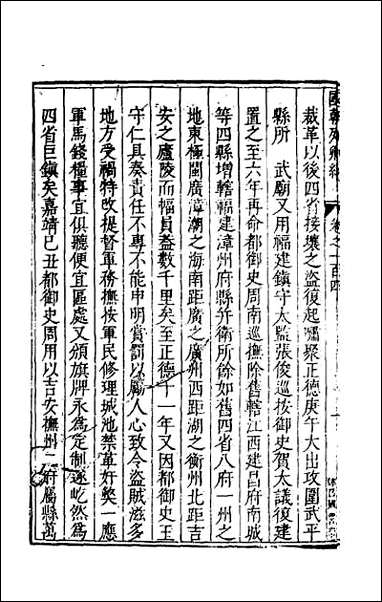 國朝列卿紀 卷之一百四
裁革以後四省接壤之盜復起嘯聚正德庚午大出攻圍武平
縣所 武廟又用福建鎮守太監張俊巡按御史賀太議復建
置之至六年再命都御史周南巡撫除舊轄江西建昌府南城
等四縣增轄福建漳州府縣并衛所餘如舊四省八府一州之
地東極閩廣漳潮之海南距廣之廣州西距湖之衡州北距吉
安之廬陵而幅員益數千里矣至正德十一年又因都御史王
守仁具奏責任不專不能申明賞罰以屬人心致令盜賊滋多
地方受禍特改提督軍務撫按軍民修理城池禁革奸獘一應
軍馬錢糧事宜俱聽便宜區處又頒旗牌永為定制遂屹然為
四省巨鎮矣嘉靖己丑都御史周用以吉安撫州二府屬縣萬